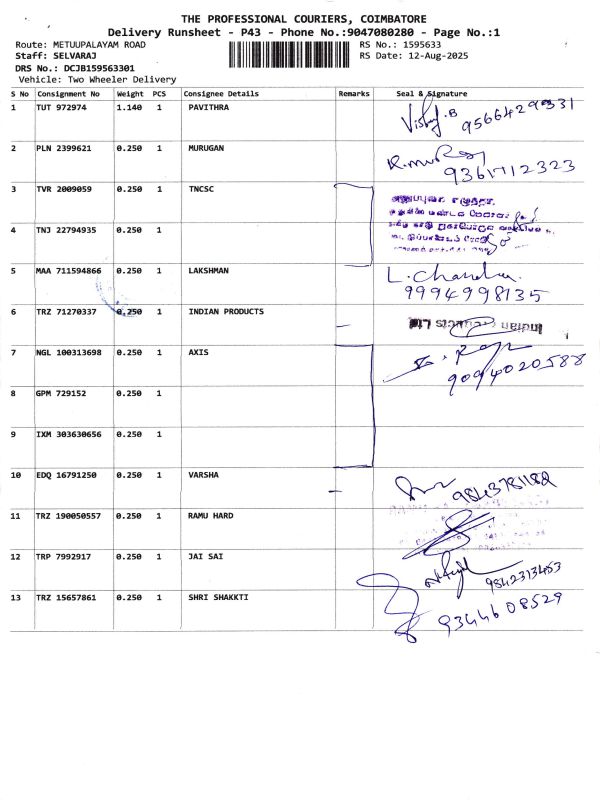 THE PROFESSIONAL COURIERS, COIMBATORE
Delivery Runsheet - P43 - Phone No.:9047080280 - Page No.:1
Route: METUUPALAYAM ROAD RS No.: 1595633
Staff: SELVARAJ RS Date: 12-Aug-2025
DRS No.: DCJB159563301
Vehicle: Two Wheeler Delivery
S No Consignment No Weight PCS Consignee Details Remarks Seal & Signature
1 TUT 972974 1.140 1 PAVITHRA 9566429331
2 PLN 2399621 0.250 1 MURUGAN 9361712323
3 TVR 2009059 0.250 1 TNCSC
4 TNJ 22794935 0.250 1
5 MAA 711594866 0.250 1 LAKSHMAN L. Chandra
9994998135
6 TRZ 71270337 0.250 1 INDIAN PRODUCTS Indian Products Ltd
7 NGL 100313698 0.250 1 AXIS 9094020588
8 GPM 729152 0.250 1
9 IXM 303630656 0.250 1
10 EDQ 16791250 0.250 1 VARSHA 9843781182
11 TRZ 190050557 0.250 1 RAMU HARD
12 TRP 7992917 0.250 1 JAI SAI 9842313453
13 TRZ 15657861 0.250 1 SHRI SHAKKTI 9344608529